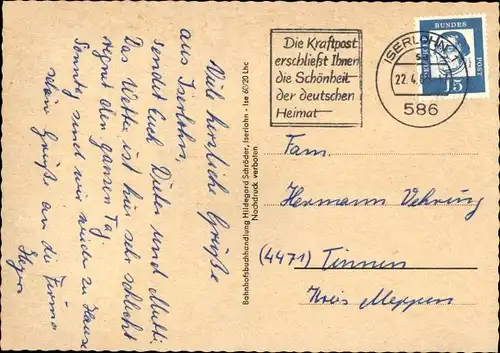 Viele herzliche Grüße
aus Iserlohn,
sendet Euch Dieter und Mutti.
Das Wetter ist hier sehr schlecht
regnet den ganzen Tag
Sonntag sind wir wieder zu Hause
Grüße an die Firma
Bahnhofsbuchhandlung Hildegard Schröder, Iserlohn - Ise 60/20 Lhc
Nachdruck verboten
Die Kraftpost
erschließt Ihnen
die Schönheit
der deutschen
Heimat
ISERLOHN 1
22.4.
586
DEUTSCHE
BUNDES
POST
15
Fam.
Hermann Vehring
(4471) Tinnen
Kreis Meppen